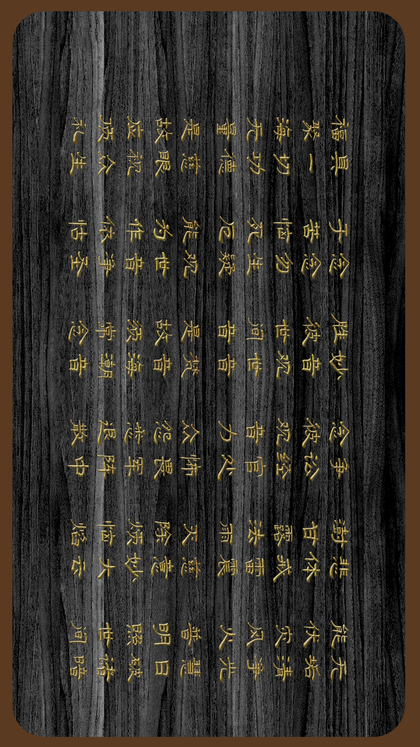 无垢清净光 慧日破诸暗
能伏灾风火 普明照世间
悲体戒雷震 慈意妙大云
澍甘露法雨 灭除烦恼焰
诤讼经官处 怖畏军阵中
念彼观音力 众怨悉退散
妙音观世音 梵音海潮音
胜彼世间音 是故须常念
念念勿生疑 观世音净圣
于苦恼死厄 能为作依怙
具一切功德 慈眼视众生
福聚海无量 是故应顶礼